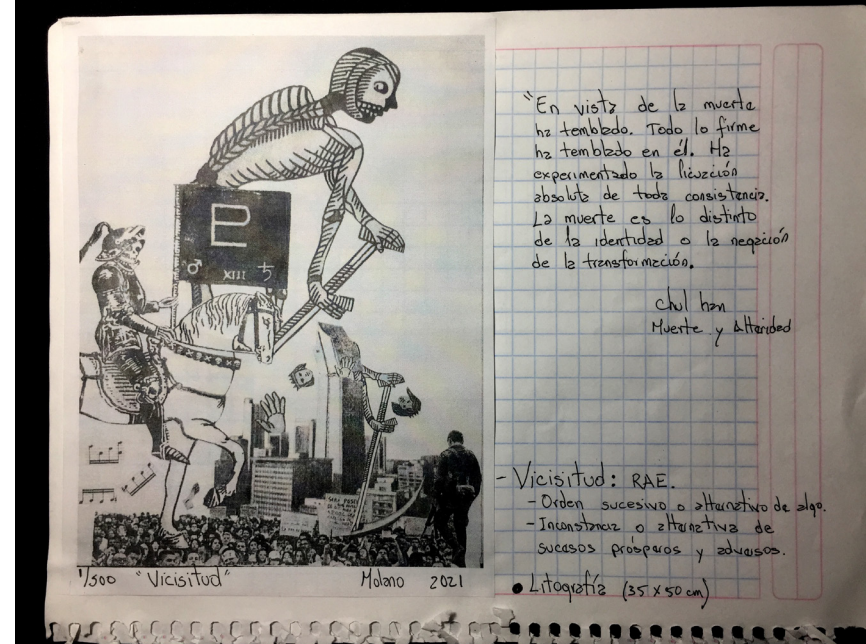 "En vista de la muerte
ha temblado. Todo lo firme
ha temblado en él. Ha
experimentado la licuación
absoluta de toda consistencia.
La muerte es lo distinto
de la identidad o la negación
de la transformación.
Chul han
Muerte y Alteridad
- Vicisitud: RAE.
- Orden sucesivo o alternativo de algo.
- Inconstancia o alternativa de
sucesos prósperos y adversos.
• Litografía (35 x 50 cm)
XIII
1/500 "Vicisitud" Molano 2021